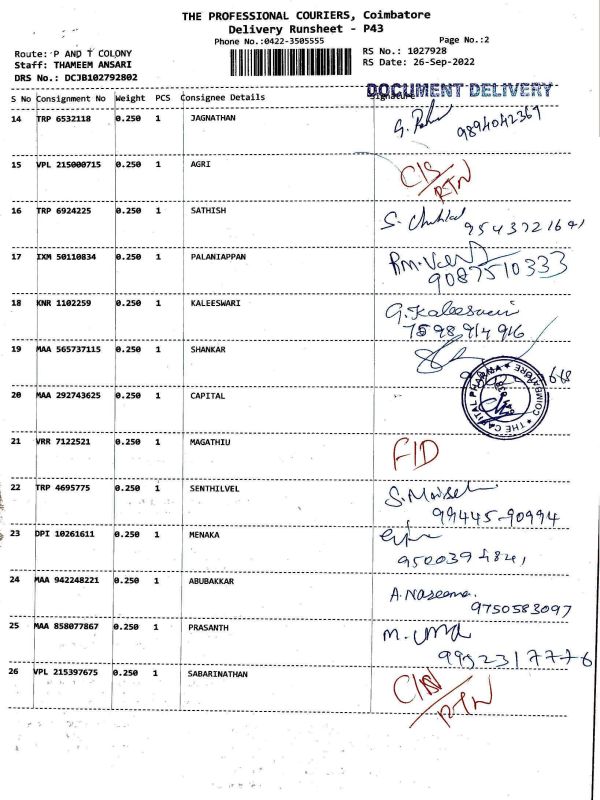 THE PROFESSIONAL COURIERS, Coimbatore
Delivery Runsheet - P43
Phone No.:0422-3505555 Page No.:2
Route: P AND T COLONY RS No.: 1027928
Staff: THAMEEM ANSARI RS Date: 26-Sep-2022
DRS No.: DCJB102792802
DOCUMENT DELIVERY
S No Consignment No Weight PCS Consignee Details Signature
14 TRP 6532118 0.250 1 JAGNATHAN
9894042369
15 VPL 215000715 0.250 1 AGRI
RTN
16 TRP 6924225 0.250 1 SATHISH
17 IXM 50110834 0.250 1 PALANIAPPAN
9087510333
18 KNR 1102259 0.250 1 KALEESWARI G. Kaleeswari
7598 914 916
19 MAA 565737115 0.250 1 SHANKAR
20 MAA 292743625 0.250 1 CAPITAL THE CAPITAL PHARMA COIMBATORE
21 VRR 7122521 0.250 1 MAGATHIU FID
22 TRP 4695775 0.250 1 SENTHILVEL
99445-90994
23 DPI 10261611 0.250 1 MENAKA
24 MAA 942248221 0.250 1 ABUBAKKAR A. Naseema.
9750583097
25 MAA 858077867 0.250 1 PRASANTH M. Uma
9952317776
26 VPL 215397675 0.250 1 SABARINATHAN
RTN